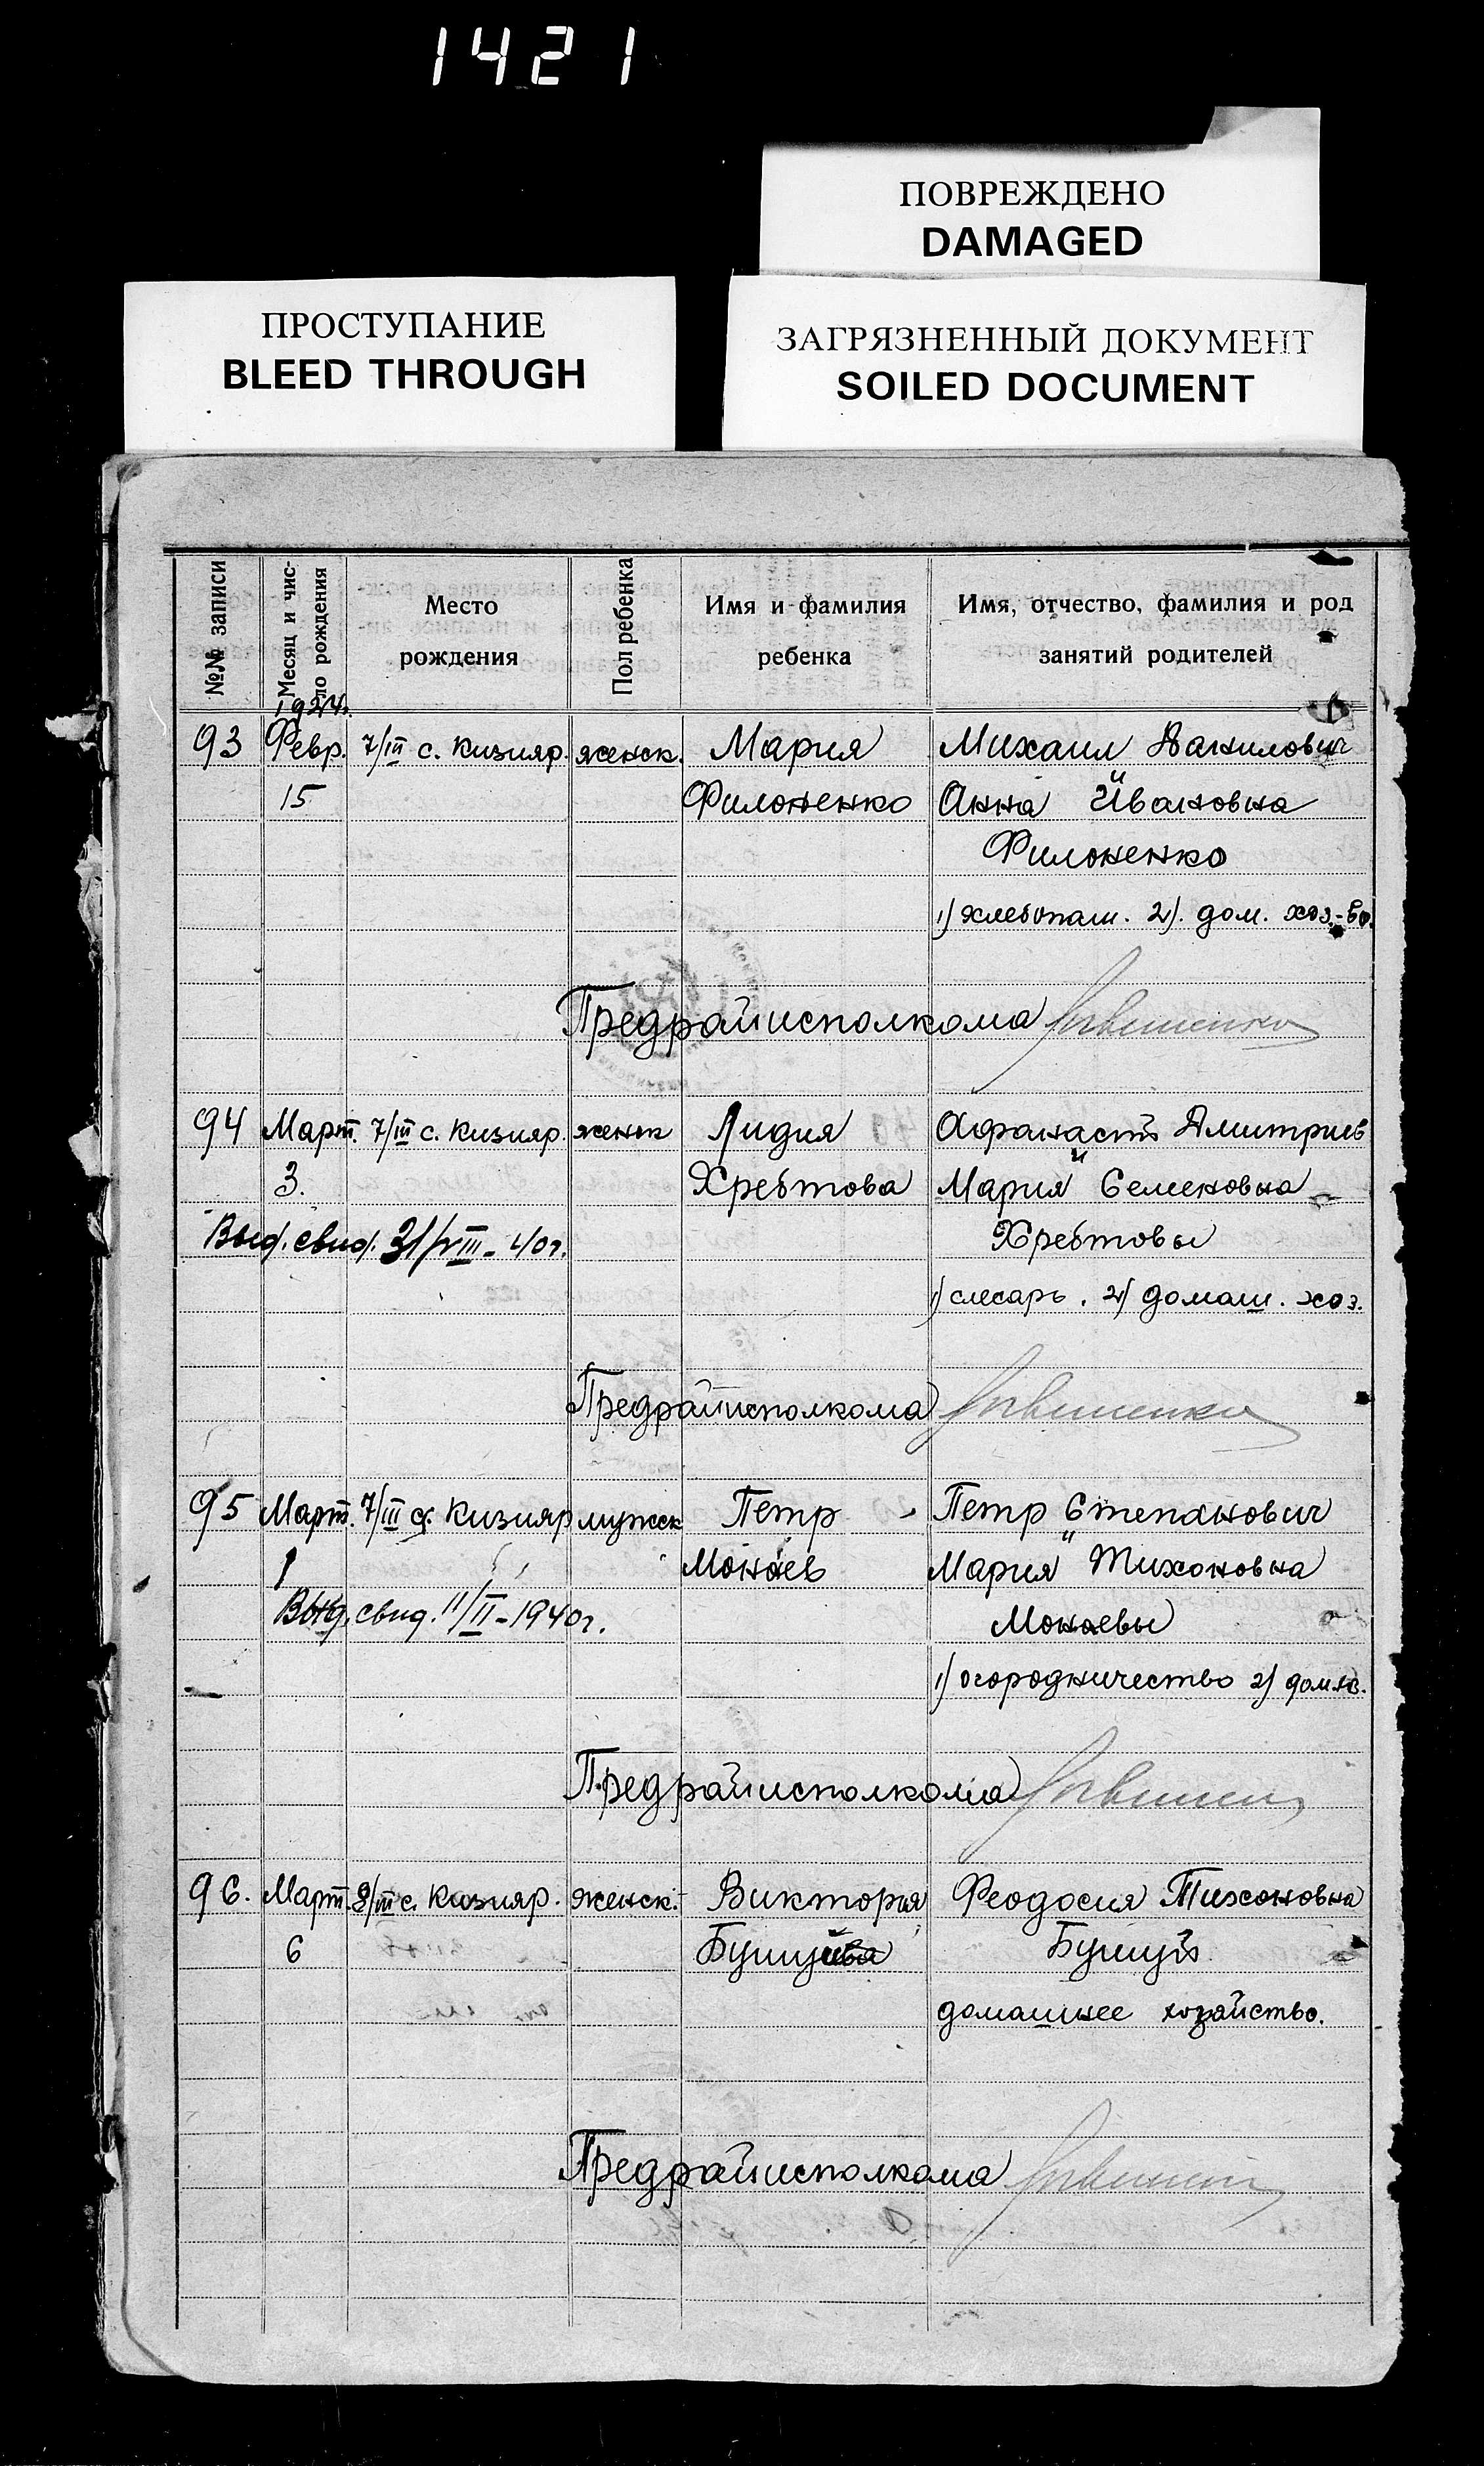 1421
ПОВРЕЖДЕНО
DAMAGED
ПРОСТУПАНИЕ
BLEED THROUGH
ЗАГРЯЗНЕННЫЙ ДОКУМЕНТ
SOILED DOCUMENT
№№ записи
Месяц и чис-
ло рождения
Место
рождения
Пол ребенка
Имя и фамилия
ребенка
Имя, отчество, фамилия и род
занятий родителей
1924г.
93 Февр. 7/III с. Кизияр. женск. Мария Михаил Данилович
15 Филоненко Анна Ивановна
Филоненко
1) хлебопаш. 2). дом. хоз.-во.
Предрайисполкома
94 Март. 7/III с. Кизияр. женск Лидия Афанасий Дмитриев
3. Хребтова Мария Семеновна
Выд. свид. 31/VIII-40г. Хребтовы
1) слесарь. 2) домаш. хоз.
Предрайисполкома
95 Март. 7/III с. Кизияр мужск Петр Петр Степанович
1 Монаев Мария Тихоновна
Выд. свид. 11/II-1940г. Монаевы
1) огородничество 2) дом хз.
Предрайисполкома
96. Март. 8/III с. Кизияр. женск. Виктория Феодосия Тихоновна
6
домашнее хозяйство.
Предрайисполкома